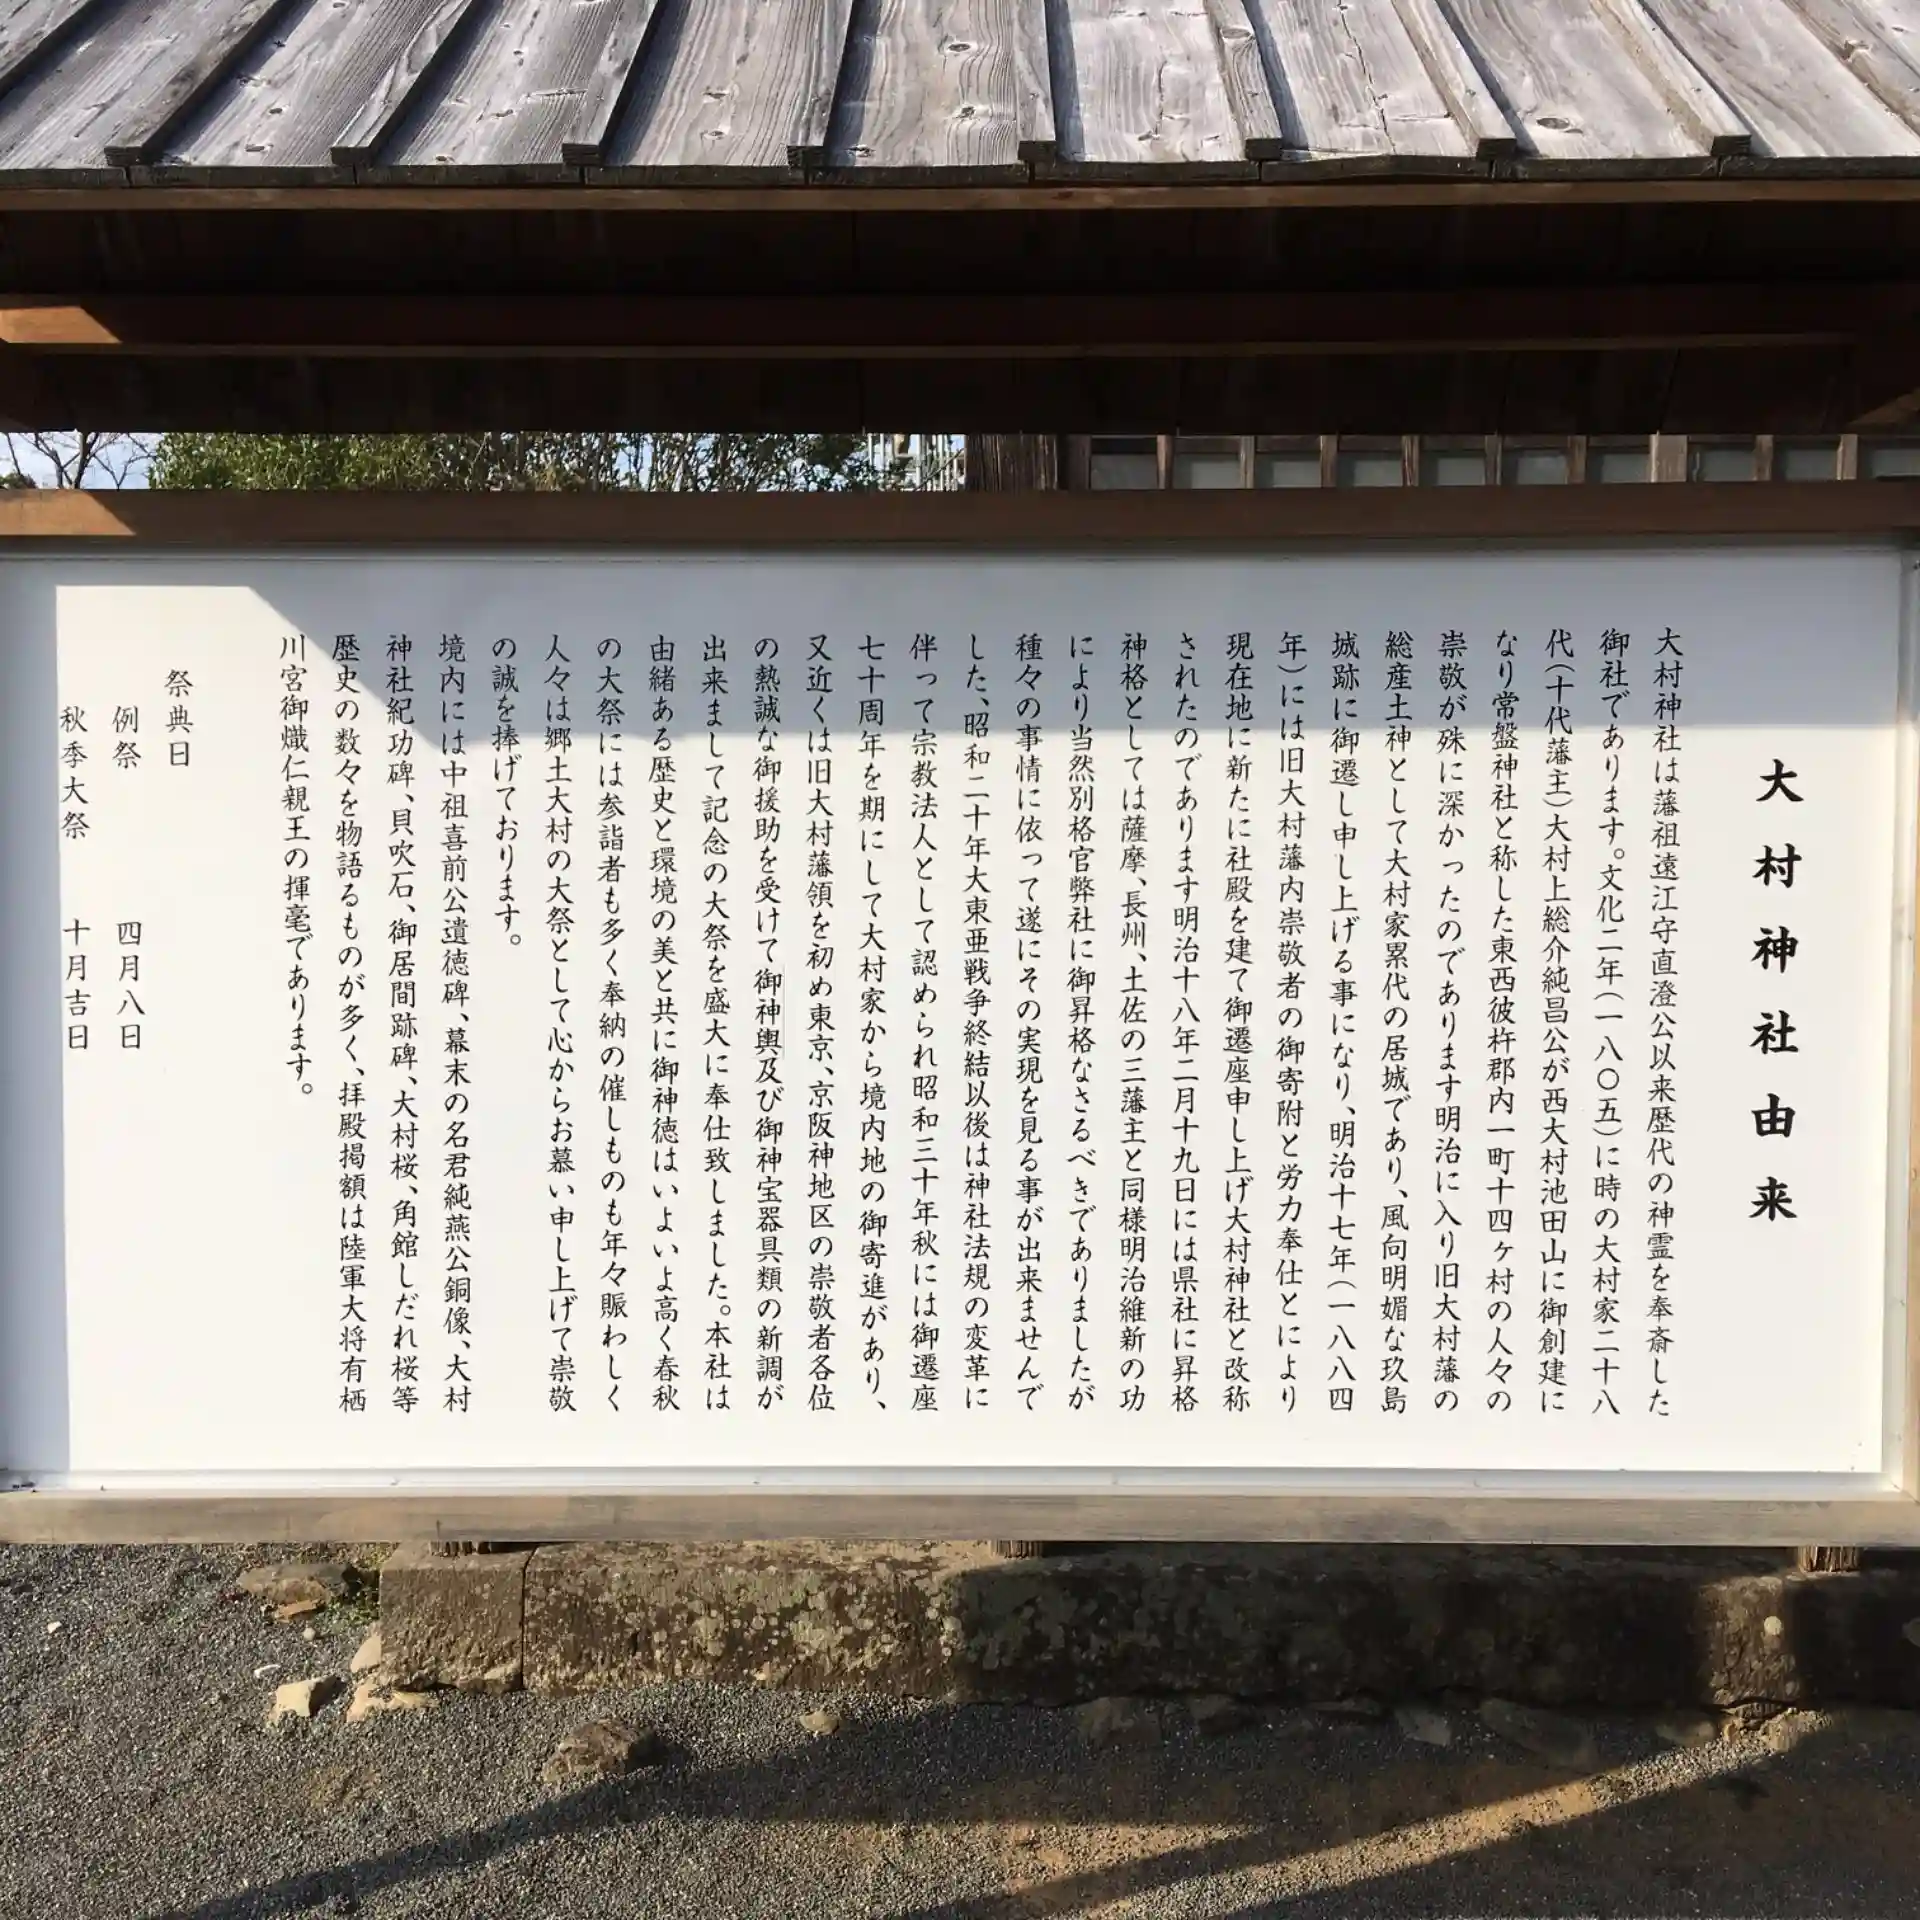 大村神社由来
大村神社は藩祖遠江守直澄公以来歴代の神霊を奉斎した
御社であります。文化二年(一八〇五)に時の大村家二十八
代(十代藩主)大村上総介純昌公が西大村池田山に御創建に
なり常盤神社と称した東西彼杵郡内一町十四ヶ村の人々の
崇敬が殊に深かったのであります明治に入り旧大村藩の
総産土神として大村家累代の居城であり、風向明媚な玖島
城跡に御遷し申し上げる事になり、明治十七年(一八八四
年)には旧大村藩内崇敬者の御寄附と労力奉仕とにより
現在地に新たに社殿を建て御遷座申し上げ大村神社と改称
されたのであります明治十八年二月十九日には県社に昇格
神格としては薩摩、長州、土佐の三藩主と同様明治維新の功
により当然別格官弊社に御昇格なさるべきでありましたが
種々の事情に依って遂にその実現を見る事が出来ませんで
した、昭和二十年大東亜戦争終結以後は神社法規の変革に
伴って宗教法人として認められ昭和三十年秋には御遷座
七十周年を期にして大村家から境内地の御寄進があり、
又近くは旧大村藩領を初め東京、京阪神地区の崇敬者各位
の熱誠な御援助を受けて御神輿及び御神宝器具類の新調が
出来まして記念の大祭を盛大に奉仕致しました。本社は
由緒ある歴史と環境の美と共に御神徳はいよいよ高く春秋
の大祭には参詣者も多く奉納の催しものも年々賑わしく
人々は郷土大村の大祭として心からお慕い申し上げて崇敬
の誠を捧げております。
境内には中祖喜前公遺徳碑、幕末の名君純熈公銅像、大村
神社紀功碑、貝吹石、御居間跡碑、大村桜、角館しだれ桜等
歴史の数々を物語るものが多く、拝殿掲額は陸軍大将有栖
川宮御熾仁親王の揮毫であります。
祭典日
例祭 四月八日
秋季大祭 十月吉日